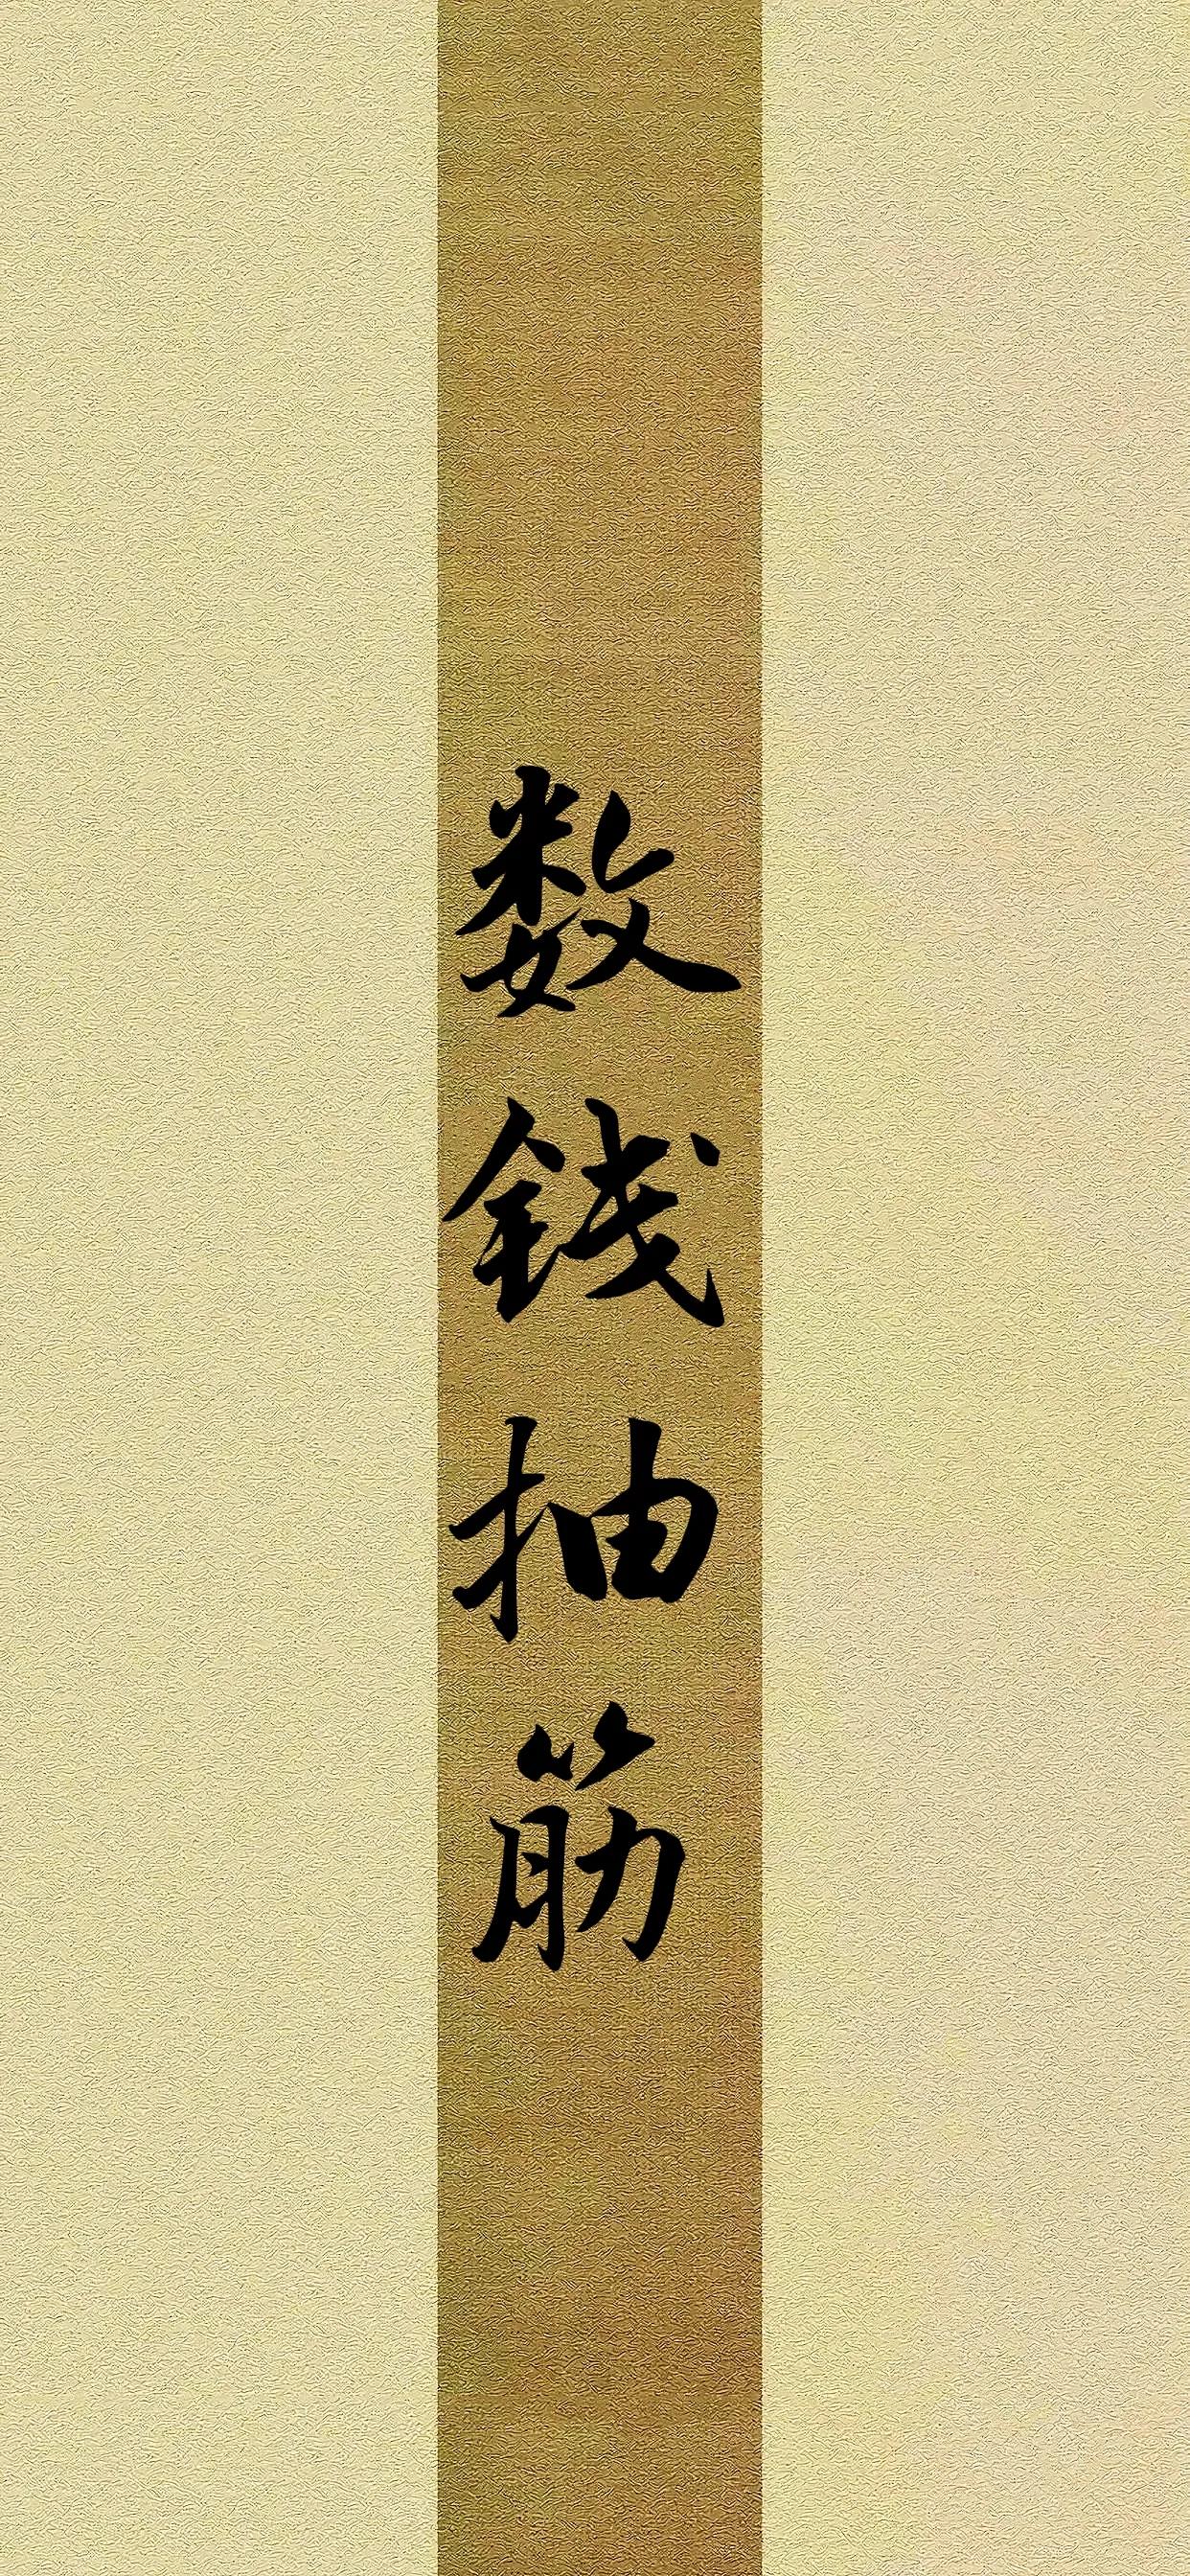 数钱抽筋